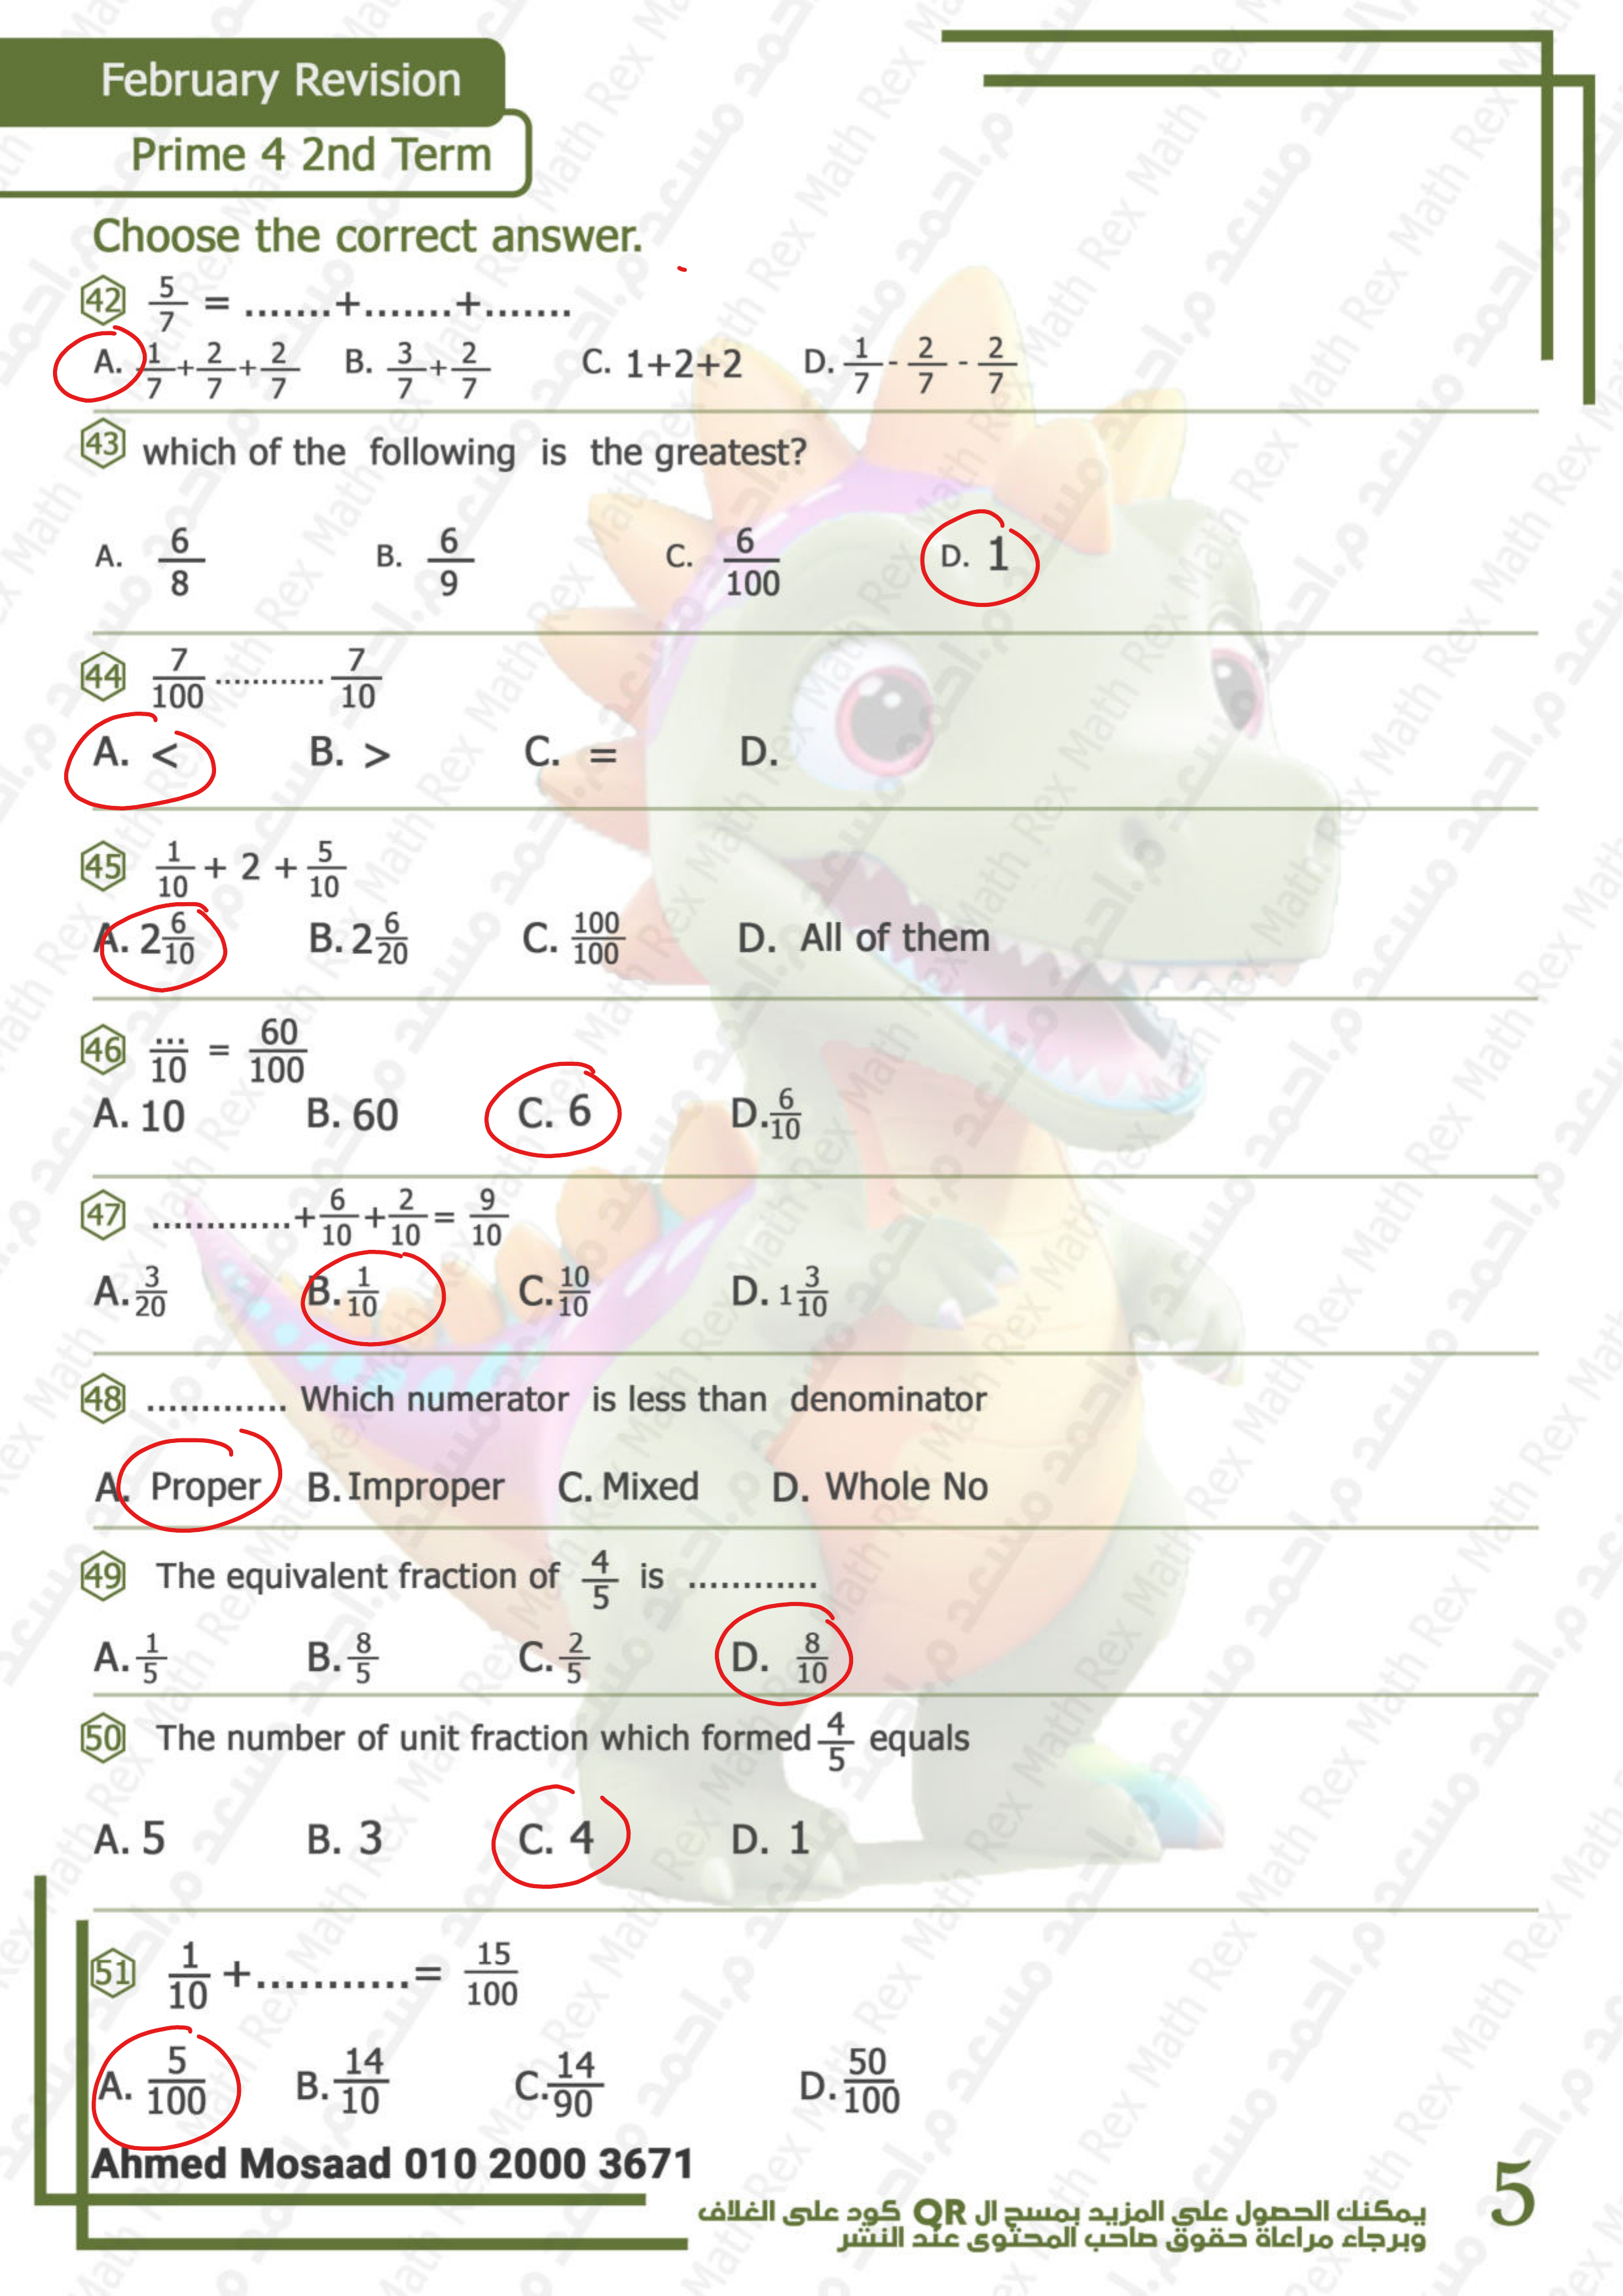 February Revision
Prime 4 2nd Term
Choose the correct answer.
42 5/7 = .......+.......+.......
A. 1/7+2/7+2/7 B. 3/7+2/7 C. 1+2+2 D. 1/7 - 2/7 - 2/7
43 which of the following is the greatest?
A. 6/8 B. 6/9 C. 6/100 D. 1
44 7/100 ............ 7/10
A. < B. > C. = D.
45 1/10 + 2 + 5/10
A. 2 6/10 B. 2 6/20 C. 100/100 D. All of them
46 .../10 = 60/100
A. 10 B. 60 C. 6 D. 6/10
47 .............+6/10+2/10= 9/10
A. 3/20 B. 1/10 C. 10/10 D. 1 3/10
48 ............. Which numerator is less than denominator
A. Proper B. Improper C. Mixed D. Whole No
49 The equivalent fraction of 4/5 is ............
A. 1/5 B. 8/5 C. 2/5 D. 8/10
50 The number of unit fraction which formed 4/5 equals
A. 5 B. 3 C. 4 D. 1
51 1/10 +...........= 15/100
A. 5/100 B. 14/10 C. 14/90 D. 50/100
Ahmed Mosaad 010 2000 3671
يمكنك الحصول على المزيد بمسح ال QR كود على الغلاف
وبرجاء مراعاة حقوق صاحب المحتوى عند النشر
5
Math Rex م.احمد مسعد